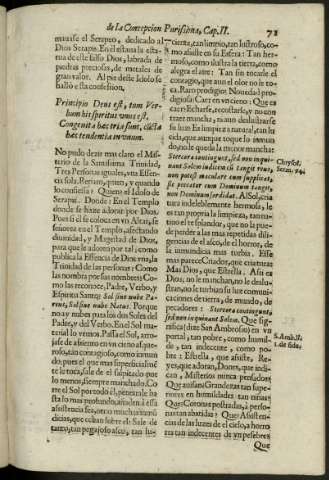 de la Concepcion Purissima, Cap. II. 72
mausse el Serapeo, dedicado al
Dios Serapis. En él estaua la esta-
tua de este falso Dios, labrada de
piedras preciosas, de metales de
gran valor. Al pie deste Idolo se
halló esta confession,
Principio Deus est, tom Ver-
bum his spiritus vnus est,
Congenita hac tria sunt, cuncta
hac tendentia in vnum.
No pudo dezir mas claro el Mis-
terio de la Santissima Trinidad,
Tres Personas iguales, vna Essen-
cia sola. Reparo, pues, y quando
lo confiessa? Quien? el Idolo de
Serapis. Donde? En el Templo
donde se haze adorar por Dios.
Pues si èl se coloca en vn Altar, se
señorea en el Templo, afectando
diuinidad, y Magestad de Dios,
para que le adoren por tal; como
publica la Essencia de Dios vna, la
Trinidad de las personas? Como
las nombra por sus nombres? Co-
mo las reconoce, Padre, Verbo, y
Espiritu Santo? Sol sine nube Pa-
ruit, Solsine nube Natus. Porque
no ay nubes para los dos Soles del
Padre, y del Verbo. En el Sol ma-
terial lo vemos. Passa el Sol, arro-
jase de assiento en vn cieno assque-
roso, tan contagioso, como inmun-
do, pues el que mas superficial se
le toca, sale de el salpicado por
lo menos, siempre manchado. Co-
rre el Sol por todo él, penetrale ha-
sta lo mas profundo, añaden à esta
assistencia seis, ocho, ò muchas mas
ocasiones, que echan sobre el Sale de
tanto, tan pegajoso asco, tan lu-
cziente, tan limpio, tan lustroso, co-
mo assiste en su Esfera? Tan her-
moso, como ilustra, y como
alegra el aire? Tan sin tocarle el
contagio, que aun el olor no le to-
ca. Raro prodigio! Nouedad pro-
digiosa! Caer en vn cieno? Que es
caer? Echarse, recostarse, y no man-
charse? Que, no, ni aun deslustrarse
su luz? Es limpieza natural, tan lu-
cida, que aunque toque lo inmun-
do, no le queda la menor mancha:
Stercora contingunt, sed non inqui-
nant Solem inditum ei tangit vnus,
non potest maculare cum supplicet,
sic peccator cum Dominum tanget,
non Dominum sordidat. Al Sol, cria-
tura indefectible, mas hermosa, le
es tan propria la limpieza, tan nati-
uo el resplandor, que no la pue-
de perder a las mas repetidas dili-
gencias de el asco, de el horror, de
la inmundicia mas turbia. Esse
mas parece Criador, que criaturas
Mas Dios, que Estrella. Assi es
Dios, no le manchan, no le deslu-
stran, no infestan sus luzes comuni-
caciones de tierra, de mundo, de
pecadores: Stercora contingunt,
sed non inquinant Solem. Que sig-
nifica (dize San Ambrosio) en vn
portal, tan pobre, como humil-
de, tan indecente, como po-
bre? Estrella, que assiste, Re-
yes, que adoran, Dones, que indi-
can, Misterios nunca pensados?
Que ausian Grandezas tan supe-
riores en humanidades tan niñas?
Que Coronas postradas, à perso-
na tan abatidas? Que? Assisten-
cias de las luzes de el cielo, a horro-
res tan indecentes de vn pesebres
Que
Chrysost.
Serm. 241
S. Amb. li.
1. de fide.